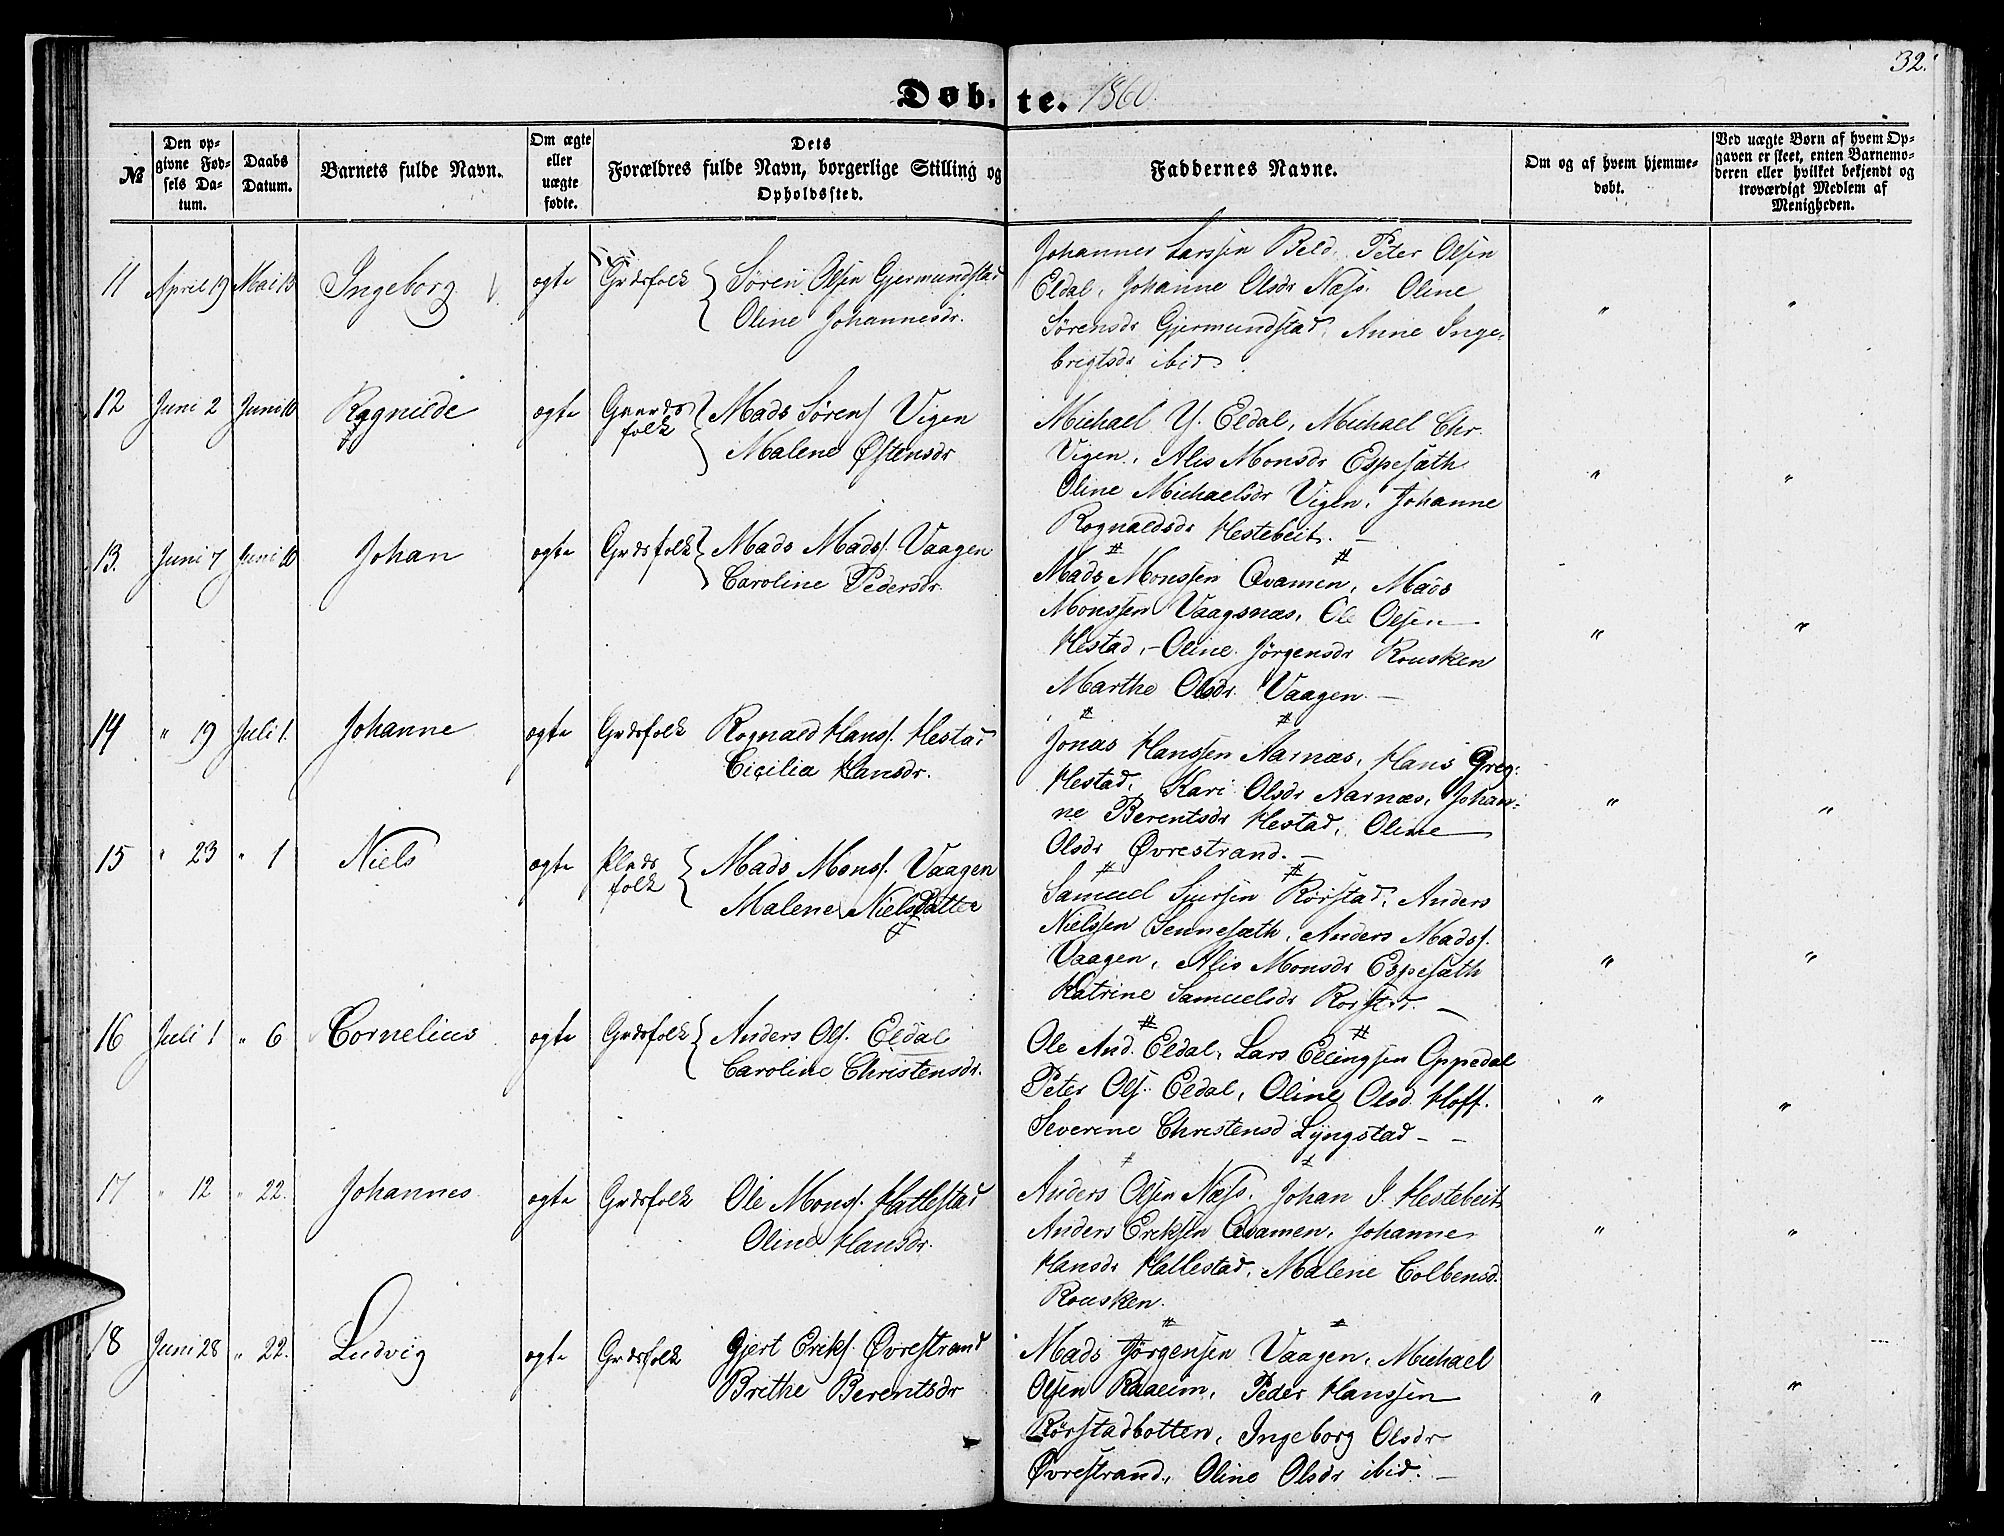 32.
Døb- te. 1860.
№
Den op-
givne Fød-
sels Da-
tum.
Daabs
Datum.
Barnets fulde Navn.
Om ægte
eller
uægte
fødte.
Dets
Forældres fulde Navn, borgerlige Stilling og
Opholdssted.
Faddernes Navne.
Om og af hvem hjemme-
døbt.
Ved uægte Børn af hvem Op-
gaven er skeet, enten Barnemo-
deren eller hvilket bekjendt og
troværdigt Medlem af
Menigheden.
11 April 19 Mai 13 Ingeborg ægte Grdsfolk { Søren Olsen Gjermundstad
Oline Johannesdr.
Johannes Larssen Beld, Peter Olsen
Eldal, Johanne Olsdr Næss. Oline
Sørensdr Gjermundstad, Anne Inge-
brigtsdr ibid
" "
12 Juni 2 Juni 10 Ragnilde ægte Gaards
folk { Mads Sørens. Vigen
Malene Østensdr
Michael Y. Eldal, Michael Chr.
Vigen, Alis Monsdr Espesæth
Oline Michaelsdr Vigen, Johanne
Rognaldsdr Hestebeit. —
" "
13. Juni 7 Juni 10 Johan ægte Grdsfolk { Mads Mads. Vaagen
Caroline Pedersdr.
Mads Monssen Qvamen, Mads
Monssen Vaagsnæs, Ole Olsen
Hestad, – Oline Jørgensdr Rousken
Marthe Olsdr. Vaagen. —
" "
14 " 19 Juli 1. Johanne ægte Grdsfolk Rognald Hans. Hestad
Cicilia Hansdr.
Jonas Hanssen Aarnæs, Hans Greg:
Hestad, Kari Olsdr Aarnæs, Johan-
ne Berentsdr Hestad, Oline
Olsdr Øvrestrand. —
" "
15 " 23 " 1 Niels ægte Plads
folk { Mads Mons. Vaagen
Malene Nielsdatter
Samuel Sjursen Rørstad, Anders
Nielssen Sennesæth, Anders Mads.
Vaagen, Alis Monsdr Espesæth
Katrine Samuelsdr Rørstad. —
" "
16 Juli 1 " 6 Cornelius ægte Grdsfolk { Anders Ols. Eldal
Caroline Christensdr.
Ole And. Eldal, Lars Ellingsen Oppedal
Peter Ols. Eldal, Oline Olsd. Hoff.
Severine Christensd Lyngstad – –
" "
17 " 12 " 22. Johannes ægte Grdsfolk Ole Mons. Hatlestad
Oline Hansdr.
Anders Olsen Næss, Johan J. Hestebeit
Anders Eriksen Qvamen, Johanne
Hansdr Hatlestad, Malene Colbensd.
Rousken.
" "
18 Juni 28 " 22. Ludvig ægte Grdsfolk Gjert Eriks. Øvrestrand
Brithe Berentsdr
Mads Jørgensen Vaagen, Michael
Olsen Raaeim, Peder Hanssen
Rørstadbotten, Ingeborg Olsdr
Øvrestrand, Oline Olsdr ibid. —
" "